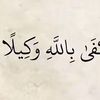 كَفَىٰ بِاللَّهِ وَكِيلًا